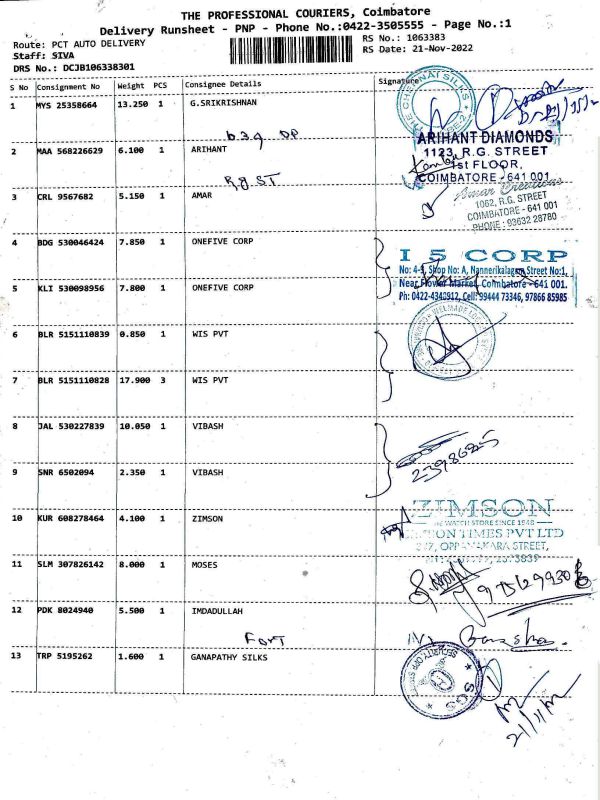 THE PROFESSIONAL COURIERS, Coimbatore
Delivery Runsheet - PNP - Phone No.:0422-3505555 - Page No.:1
Route: PCT AUTO DELIVERY
RS No.: 1063383
Staff: SIVA
RS Date: 21-Nov-2022
DRS No.: DCJB106338301
S No Consignment No Weight PCS Consignee Details Signature
1 MYS 25358664 13.250 1 G.SRIKRISHNAN
THE CHENNAI SILKS
2 MAA 568226629 6.100 1 ARIHANT
ARIHANT DIAMONDS
1123, R.G. STREET
1st FLOOR,
COIMBATORE - 641 001
R.g ST
3 CRL 9567682 5.150 1 AMAR
Amar Creations
1062, R.G. STREET
COIMBATORE - 641 001
PHONE : 93632 28780
4 BDG 530046424 7.850 1 ONEFIVE CORP
I 5 CORP
No: 4-5, Shop No: A, Nannerikalagam Street No:1,
Near Flower Market, Coimbatore - 641 001.
Ph: 0422-4340912, Cell: 99444 73346, 97866 85985
5 KLI 530098956 7.800 1 ONEFIVE CORP
6 BLR 5151110839 0.850 1 WIS PVT
7 BLR 5151110828 17.900 3 WIS PVT
8 JAL 530227839 10.050 1 VIBASH
9 SNR 6502094 2.350 1 VIBASH
10 KUR 608278464 4.100 1 ZIMSON
ZIMSON
THE WATCH STORE SINCE 1948
TIMES PVT LTD
STREET,
11 SLM 307826142 8.000 1 MOSES
12 PDK 8024940 5.500 1 IMDADULLAH
Fort
13 TRP 5195262 1.600 1 GANAPATHY SILKS
SECURITY
SGS
21/11/22